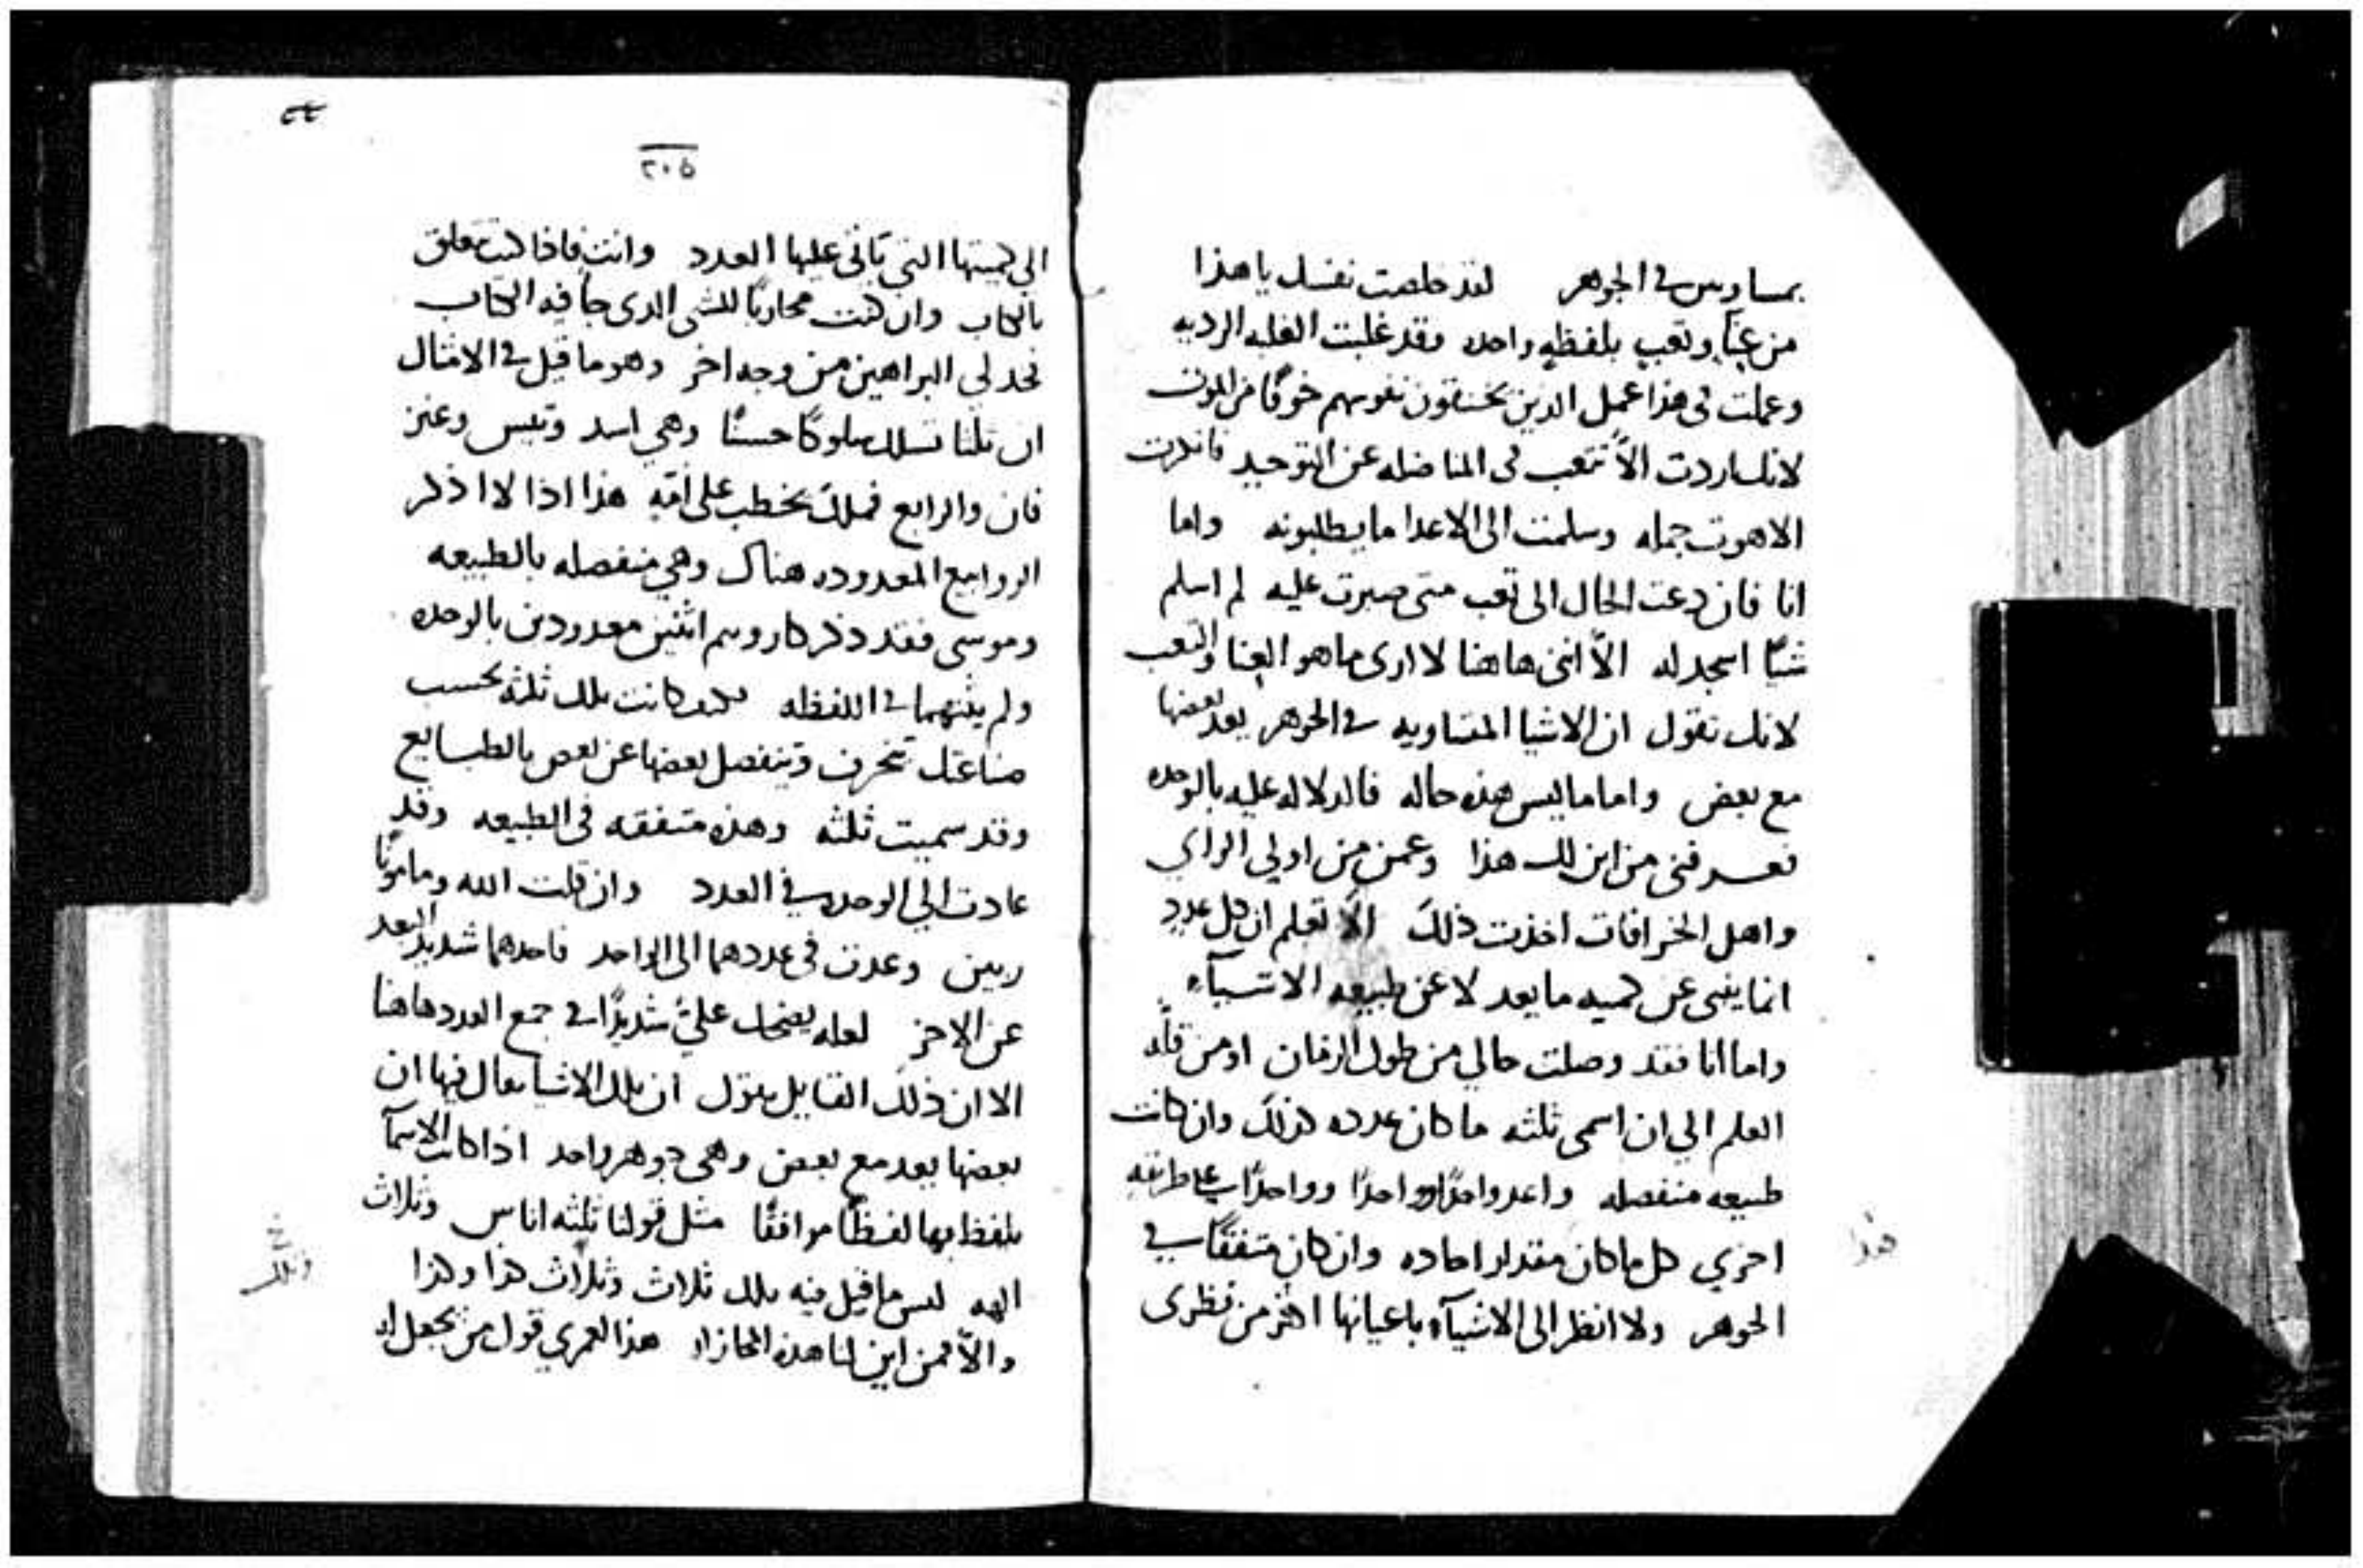 بمساويين في الجوهر لقد خلصت نفسك يا هذا
من عنا وتعب بلفظه واحده وقد غلبت الغلبه الرديه
وعملت في هذا عمل الدين يخنقون نفوسهم خوفا من الموت
لانك اردت الا تتعب في المناضله عن التوحيد فانكرت
الاهوت جمله وسلمت الى الاعدا ما يطلبونه واما
انا فان دعت الحال الى تعب متى صبرت عليه لم اسلم
شيا اسجد له الا انني هاهنا لا ارى ما هو العنا والتعب
لانك تقول ان الاشيا المتساويه في الجوهر يعد بعضها
مع بعض واما ما ليس هذه حاله فالدلاله عليه بالوحده
فعرفني من اين لك هذا وعمن من اولي الراي
واهل الخرافات اخذت ذلك الا تعلم ان كل عدد
انما ينبى عن كميه ما يعد لا عن طبيعه الاشيآء
واما انا فقد وصلت حالي من طول الزمان او من قله
العلم الي ان اسمى ثلثه ما كان عدده كذلك وان كانت
طبيعه منفصله واعد واحدًا وواحدًا وواحدًا على طريقه
اخري كل ما كان مقدار احاده وان كان متفقًا في
الجوهر ولا انظر الى الاشيآء باعيانها اكثر من نظرى
هذا
٢٠٥
الي كميتها التي ياتي عليها العدد وانت فاذا كنت تعلق
بالكتاب وان كنت محاربًا للشى الدى جا فيه الكتاب
فخد لي البراهين من وجه اخر وهو ما قيل في الامثال
ان ثلثا تسلك سلوكًا حسنًا وهي اسد وتيس وعنز
فان والرابع فملك يخطب على امه هذا اذا لا اذكر
الروابيع المعدوده هناك وهي منفصله بالطبيعه
وموسى فقد ذكر كاروبيم اثنين معدودين بالوحده
ولم يثنهما في اللفظه فكيف كانت تلك ثلثه بحسب
صناعتك تنحرف وتنفصل بعضها عن بعض بالطبايع
وقد سميت ثلثه وهذه متفقه في الطبيعه وقد
عادت الي الوحده في العدد وان قلت الله ومامونًا
ربين وعدت في عددهما الى الواحد فاحدهما شديد البعد
عن الاخر لعله يضحك عليّ شديدًا في جمع العدد هاهنا
الا ان ذلك القايل يقول ان تلك الاشيا يقال فيها ان
بعضها يعد مع بعض وهي جوهر واحد اذا كانت الاسمآ
يلفظ بها لفظًا موافقًا مثل قولنا ثلثه اناس وثلاث
الهه ليس ما قيل فيه تلك ثلاث وثلاث كذا وكذا
والا فمن اين لنا هذه المجازاه هذا لعمري قول من يجعل له